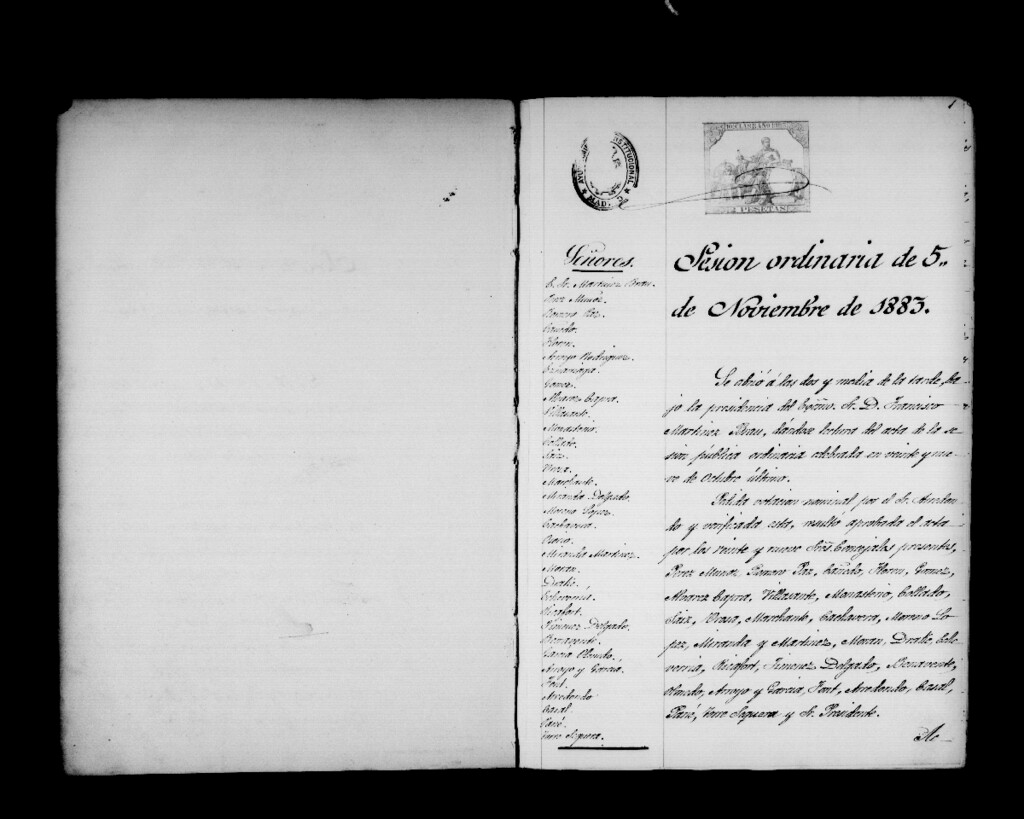 1
AYU
STITUCIONAL
MAD
PESETAS
Señores.
E. Sr. Martinez Brau.
Perez Muñoz.
Romero Paz.
Cañedo.
Arroyo Rodriguez.
Gomez.
Alvarez Capra.
Villasante.
Monasterio.
Collado.
Saiz.
Marchante.
Miranda Delgado.
Moreno Lopez.
Cachavera.
Miranda Martinez.
Moran.
Echevarria.
Ricafort.
Jimenez Delgado.
Benavente.
Garcia
Arroyo y Garcia.
Font.
Arredondo
Casal.
Pané.
Segura.
Sesion ordinaria de 5„
de Noviembre de 1883.
Se abrió á las dos y media de la tarde, ba-
jo la presidencia del Excmo. Sr. D. Francisco
Martinez Brau, dándose lectura del acta de la se-
sion pública ordinaria celebrada en veinte y nue-
ve de Octubre último.
Pedida votacion nominal por el Sr. Arredon-
do y verificada esta, resultó aprobada el acta
por los veinte y nueve Sres. Concejales presentes,
Perez Muñoz, Romero Paz, Cañedo, Gomez,
Alvarez Capra, Villasante, Monasterio, Collado,
Saiz, Marchante, Cachavera, Moreno Lo-
pez, Miranda y Martinez, Moran, Eche-
varria, Ricafort, Jimenez Delgado, Benavente,
Arroyo y Garcia, Font, Arredondo, Casal,
Pané, Segura y Sr. Presidente.
Ac-